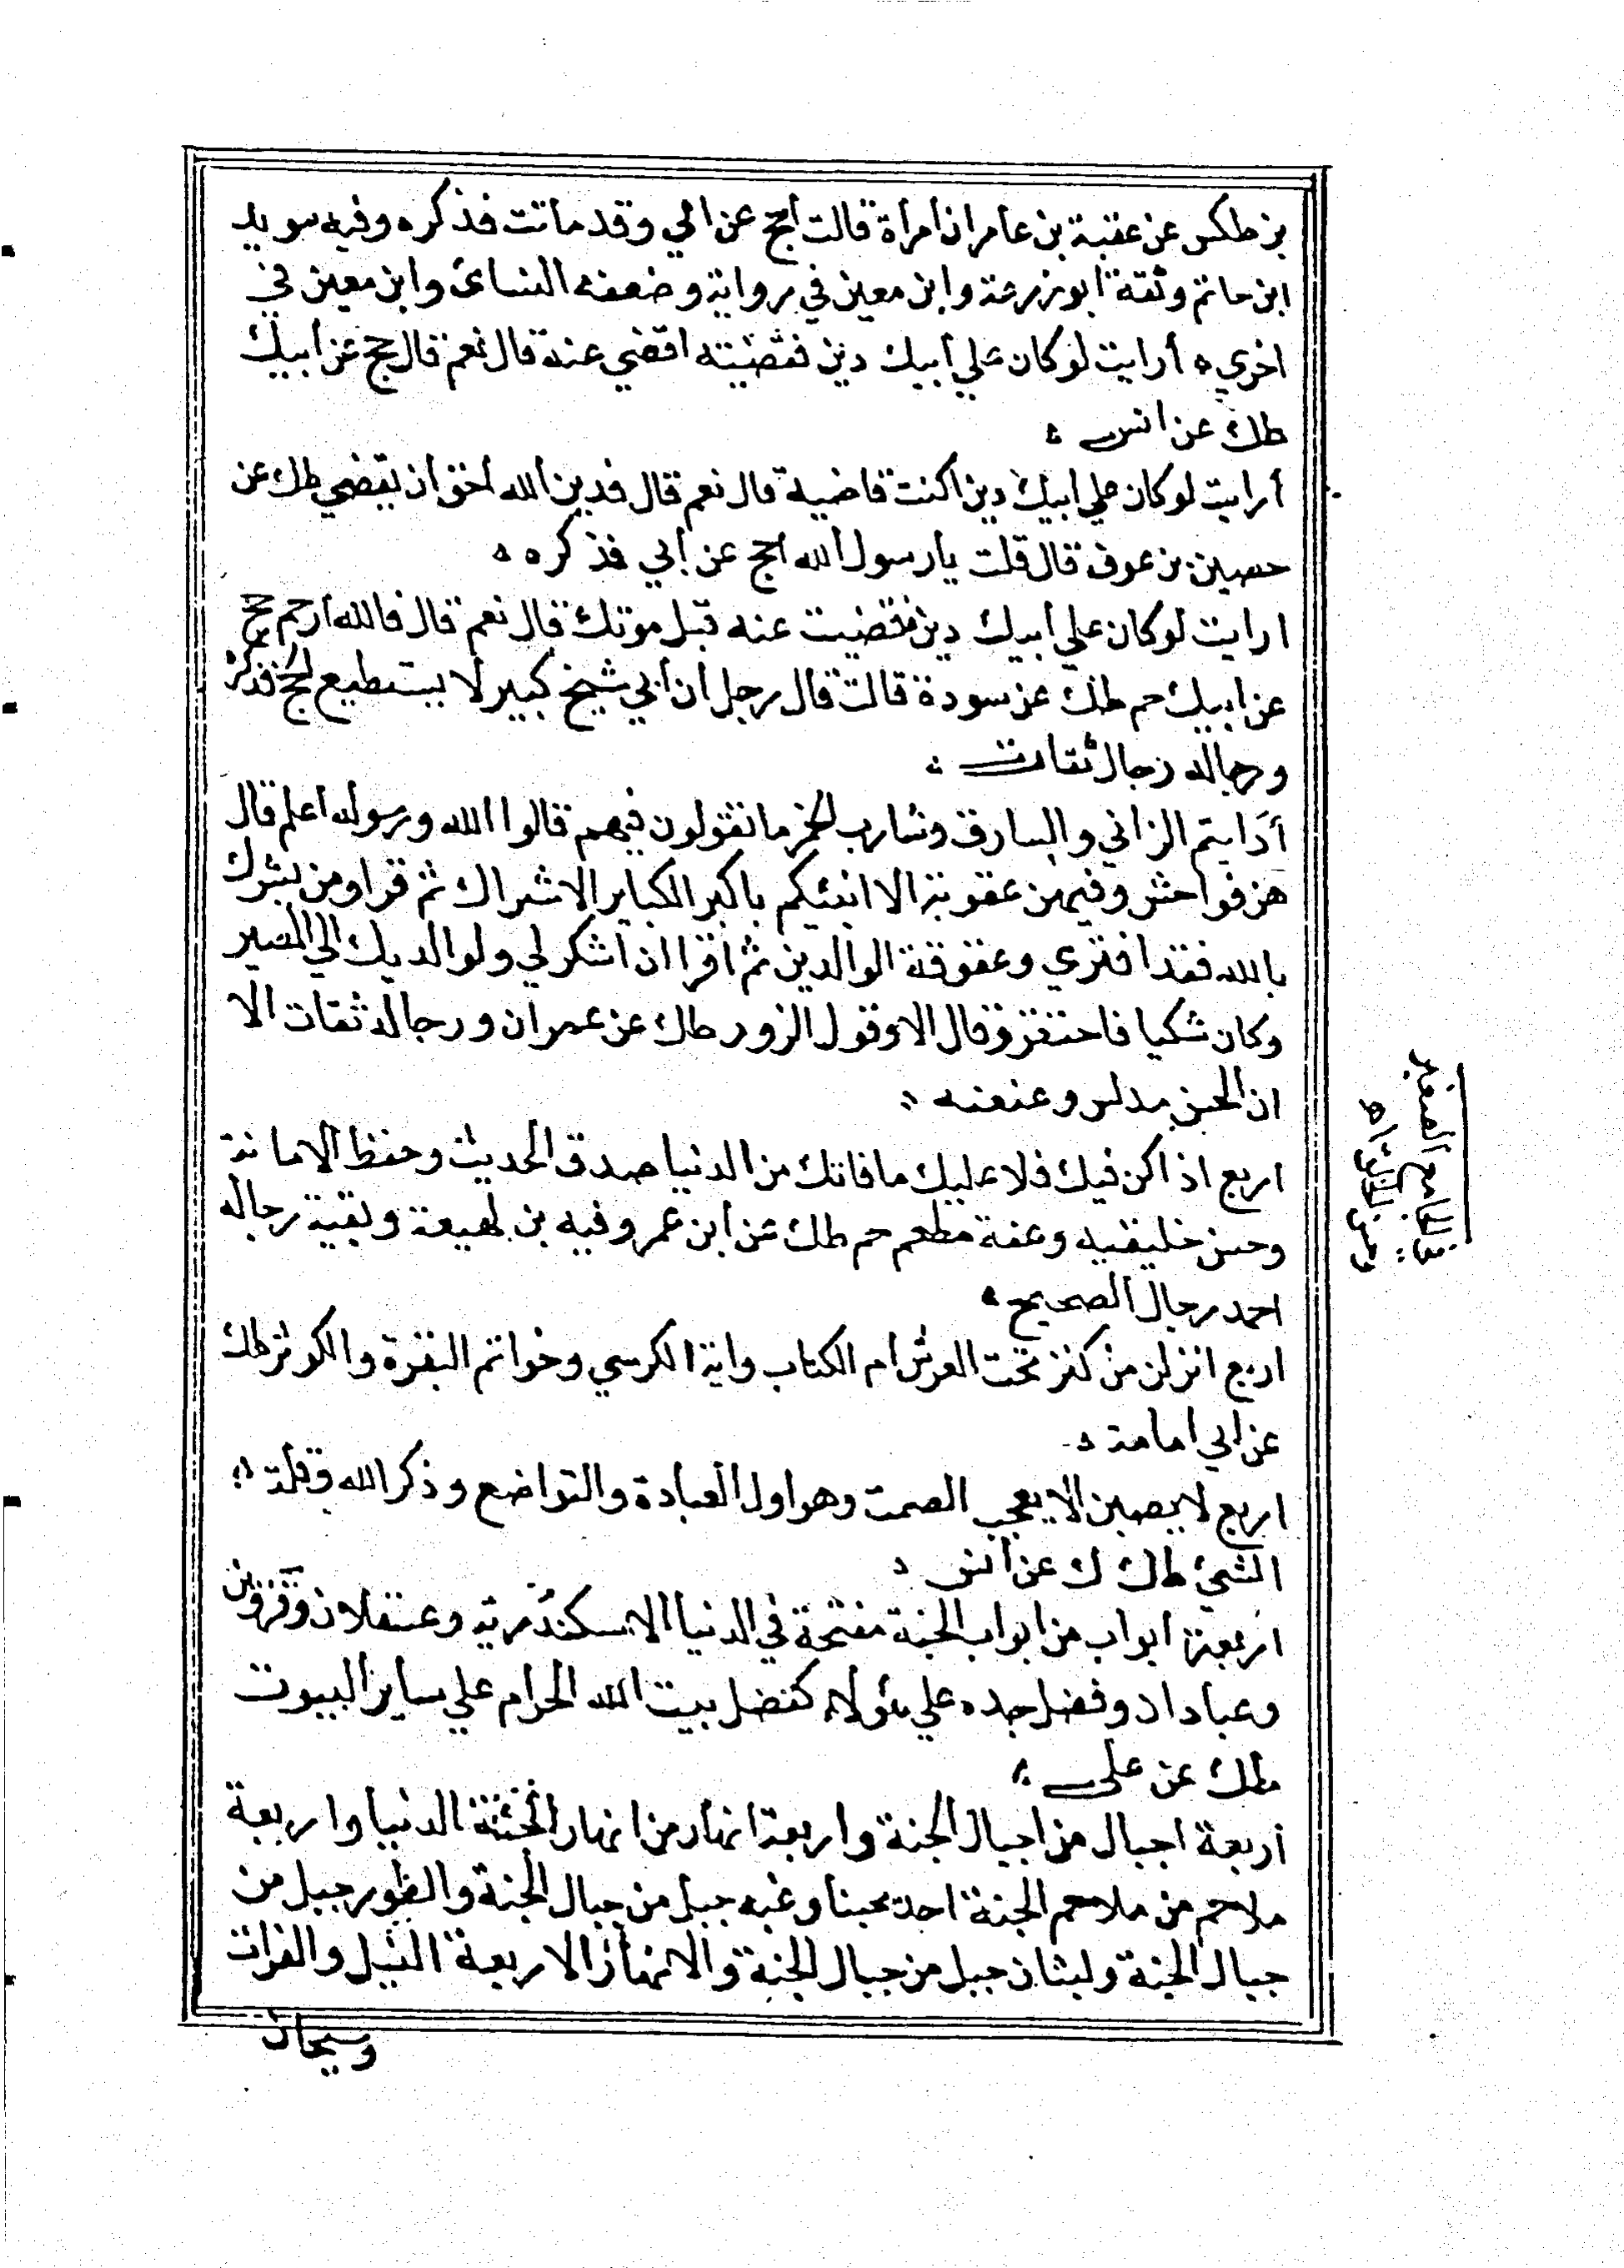 بز طكس عن عقبة بن عامر ان امرأة قالت أحج عن امي وقد ماتت فذكره وفيه سويد
ابن حاتم وثقة ابو زرعة وابن معين في رواية وضعفه النساى وابن معين في
اخري ه أرايت لو كان علي أبيك دين فقضيته اقضي عنه قال نعم قال حج عن أبيك
طك عن انس ه
أرايت لو كان علي ابيك دين اكنت قاضية قال نعم قال فدين الله احق ان يقضي طك عن
حصين بن عوف قال قلت يا رسول الله احج عن ابي فذكره ه
ارايت لو كان علي ابيك دين فقضيت عنه قبل موتك قال نعم قال فالله ارحم حج
عن ابيك حم طك عن سودة قالت قال رجل ان ابي شيخ كبير لا يستطيع الحج فذكره
ورجاله رجال ثقات ه
أرايتم الزاني والسارق وشارب الخمر ما تقولون فيهم قالوا الله ورسوله اعلم قال
هن فواحش وفيهن عقوبة الا انبئكم باكبر الكباير الاشراك ثم قرا ومن يشرك
بالله فقد افتري وعقوقة الوالدين ثم اقرا ان اشكر لي ولوالديك الي المصير
وكان متكيا فاحتفز وقال الا وقول الزور طك عن عمران ورجاله ثقات الا
ان الحسن مدلس وعنعنه ه
اربع اذا كن فيك فلا عليك ما فاتك من الدنيا صدق الحديث وحفظ الامانة
وحسن خليقيه وعفة مطعم حم طك عن ابن عمر وفيه بن لهيعة وبقية رجاله
احمد رجال الصحيح ه
اربع انزلن من كنز تحت العرش ام الكتاب واية الكرسي وخواتم البقرة والكوثر طك
عن ابي امامة ه
اربع لا يصبن الا بعجب الصمت وهو اول العبادة والتواضع وذكر الله وقلة
الشئ طك ك عن انس ه
اربعة ابواب من ابواب الجنة مفتحة في الدنيا الاسكندرية وعسقلان وقزوين
وعبادان وفضل جده علي هؤلاء كفضل بيت الله الحرام علي ساير البيوت
طك عن على
أربعة اجبال من اجبال الجنة واربعة انهار من انهار الجنة الدنيا واربعة
ملاحم من ملاحم الجنة احد يحبنا ونحبه جبل من جبال الجنة والطور جبل من
جبال الجنة ولبنان جبل من جبال الجنة والانهار الاربعة النيل والفرات
وسيحان
في الجامع الصغير